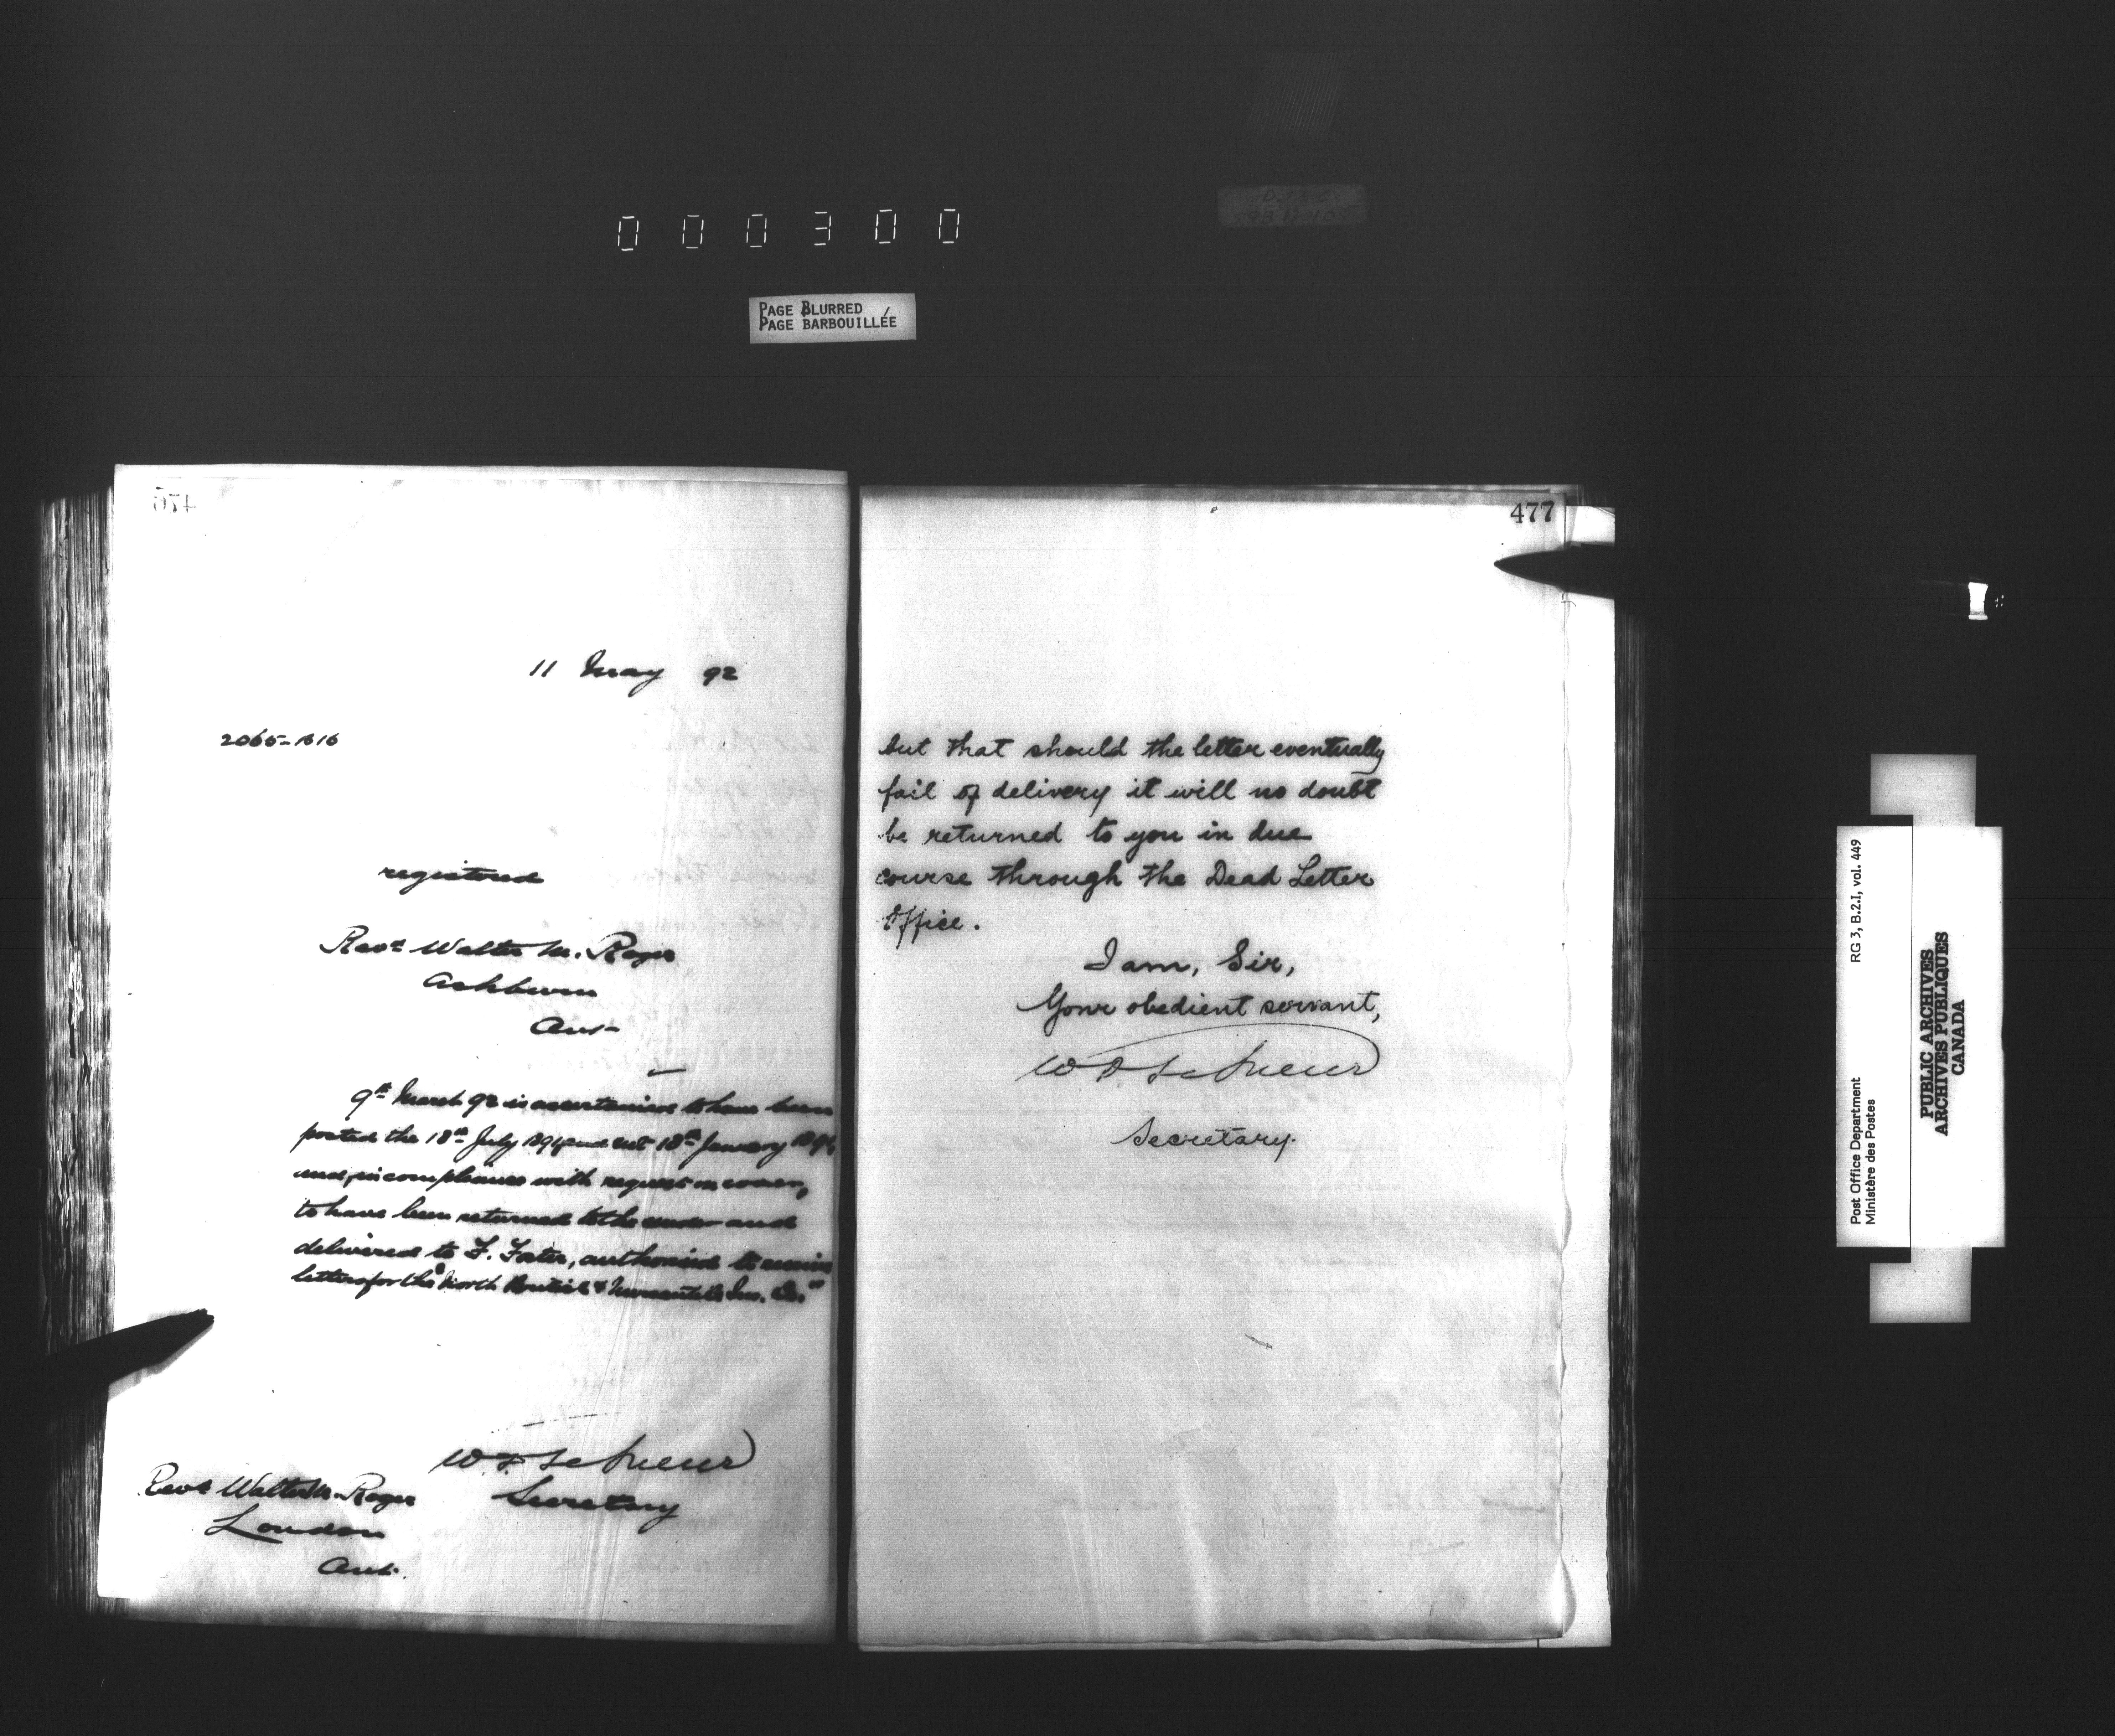 000300
PAGE BLURRED
PAGE BARBOUILLÉE
476
11 May 92
2065-1616
registered
Revd Walter M. Roger
Ashburn
Ont
9th March 92 is ascertained to have been
posted the 18th July 1891 and not 18th January 1892,
and, in compliance with request on cover,
to have been returned to the sender and
delivered to F. Foster, authorised to receive
letters for the "North British & Mercantile Ins. Co."
Secretary
Revd Walter M. Roger
London
Ont.
477
but that should the letter eventually
fail of delivery it will no doubt
be returned to you in due
course through the Dead Letter
Office.
I am, Sir,
Your obedient servant,
Secretary.
RG 3, B.2.I, vol. 449
Post Office Department
Ministère des Postes
PUBLIC ARCHIVES
ARCHIVES PUBLIQUES
CANADA